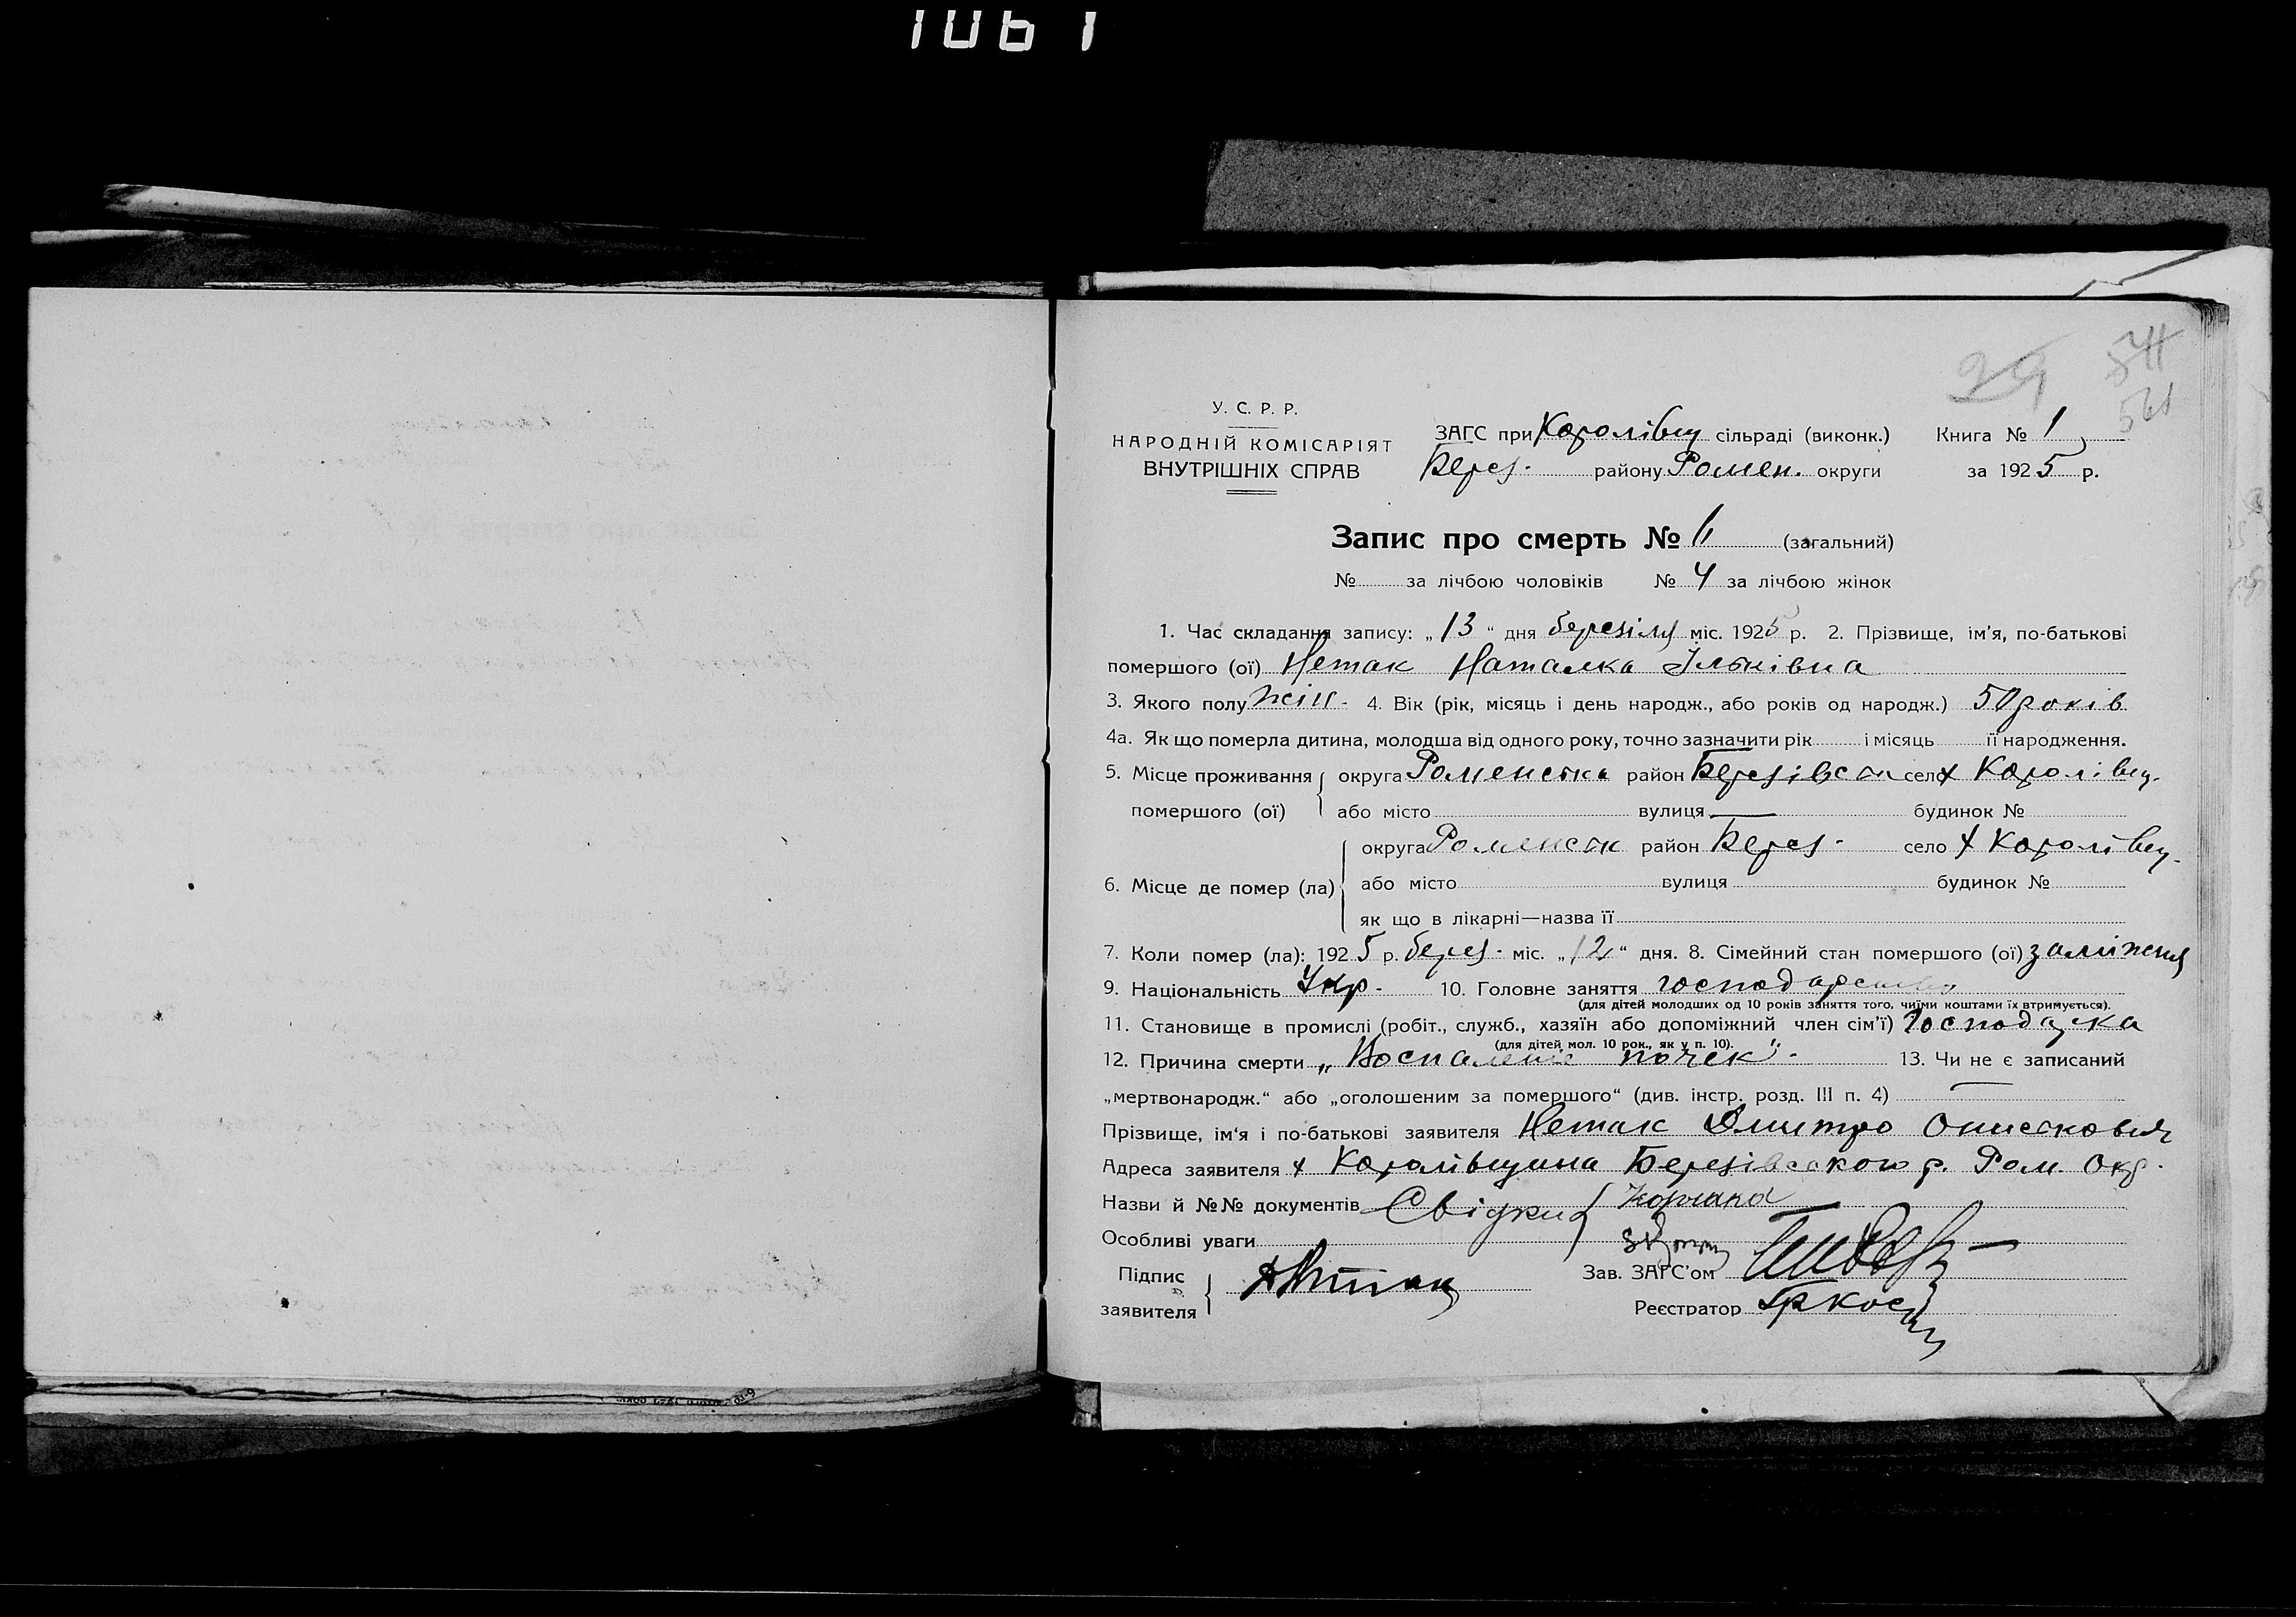 1061
544
561
У. С. Р. Р.
НАРОДНІЙ КОМІСАРІЯТ
ВНУТРІШНІХ СПРАВ
ЗАГС при Королівщ сільраді (виконк.) Книга № 1
Берез. району Ромен. округи за 1925 р.
Запис про смерть № (загальний)
№ за лічбою чоловіків № 4 за лічбою жінок
1. Час складання запису: „13“ дня березіля міс. 1925 р. 2. Прізвище, ім'я, по-батькові
помершого (ої) Нетак Наталка Ільківна
3. Якого полу жін. 4. Вік (рік, місяць і день народж., або років од народж.) 50 років
4а. Як що померла дитина, молодша від одного року, точно зазначити рік і місяць її народження.
5. Місце проживання округа Роменська район Березівськ село х Королівщ.
помершого (ої) або місто вулиця — будинок №
округа Роменськ район Берез. село х Королівщ.
6. Місце де помер (ла) або місто вулиця будинок №
як що в лікарні—назва її
7. Коли помер (ла): 1925 р. берез. міс. „12“ дня. 8. Сімейний стан помершого (ої) заміжня
9. Національність Укр. 10. Головне заняття господарство
(для дітей молодших од 10 років заняття того, чиїми коштами їх втримується).
11. Становище в промислі (робіт., служб., хазяїн або допоміжний член сім'ї) Господарка
(для дітей мол. 10 рок., як у п. 10).
12. Причина смерти „Воспаленіє почек". 13. Чи не є записаний
„мертвонародж.“ або „оголошеним за помершого“ (див. інстр. розд. III п. 4) —
Прізвище, ім'я і по-батькові заявителя Нетак Дмитро Онискович
Адреса заявителя х Королівщина Березівського р. Ром. Окр.
Назви й №№ документів Свідки
Особливі уваги
Підпис
заявителя
Зав. ЗАГС'ом
Реєстратор